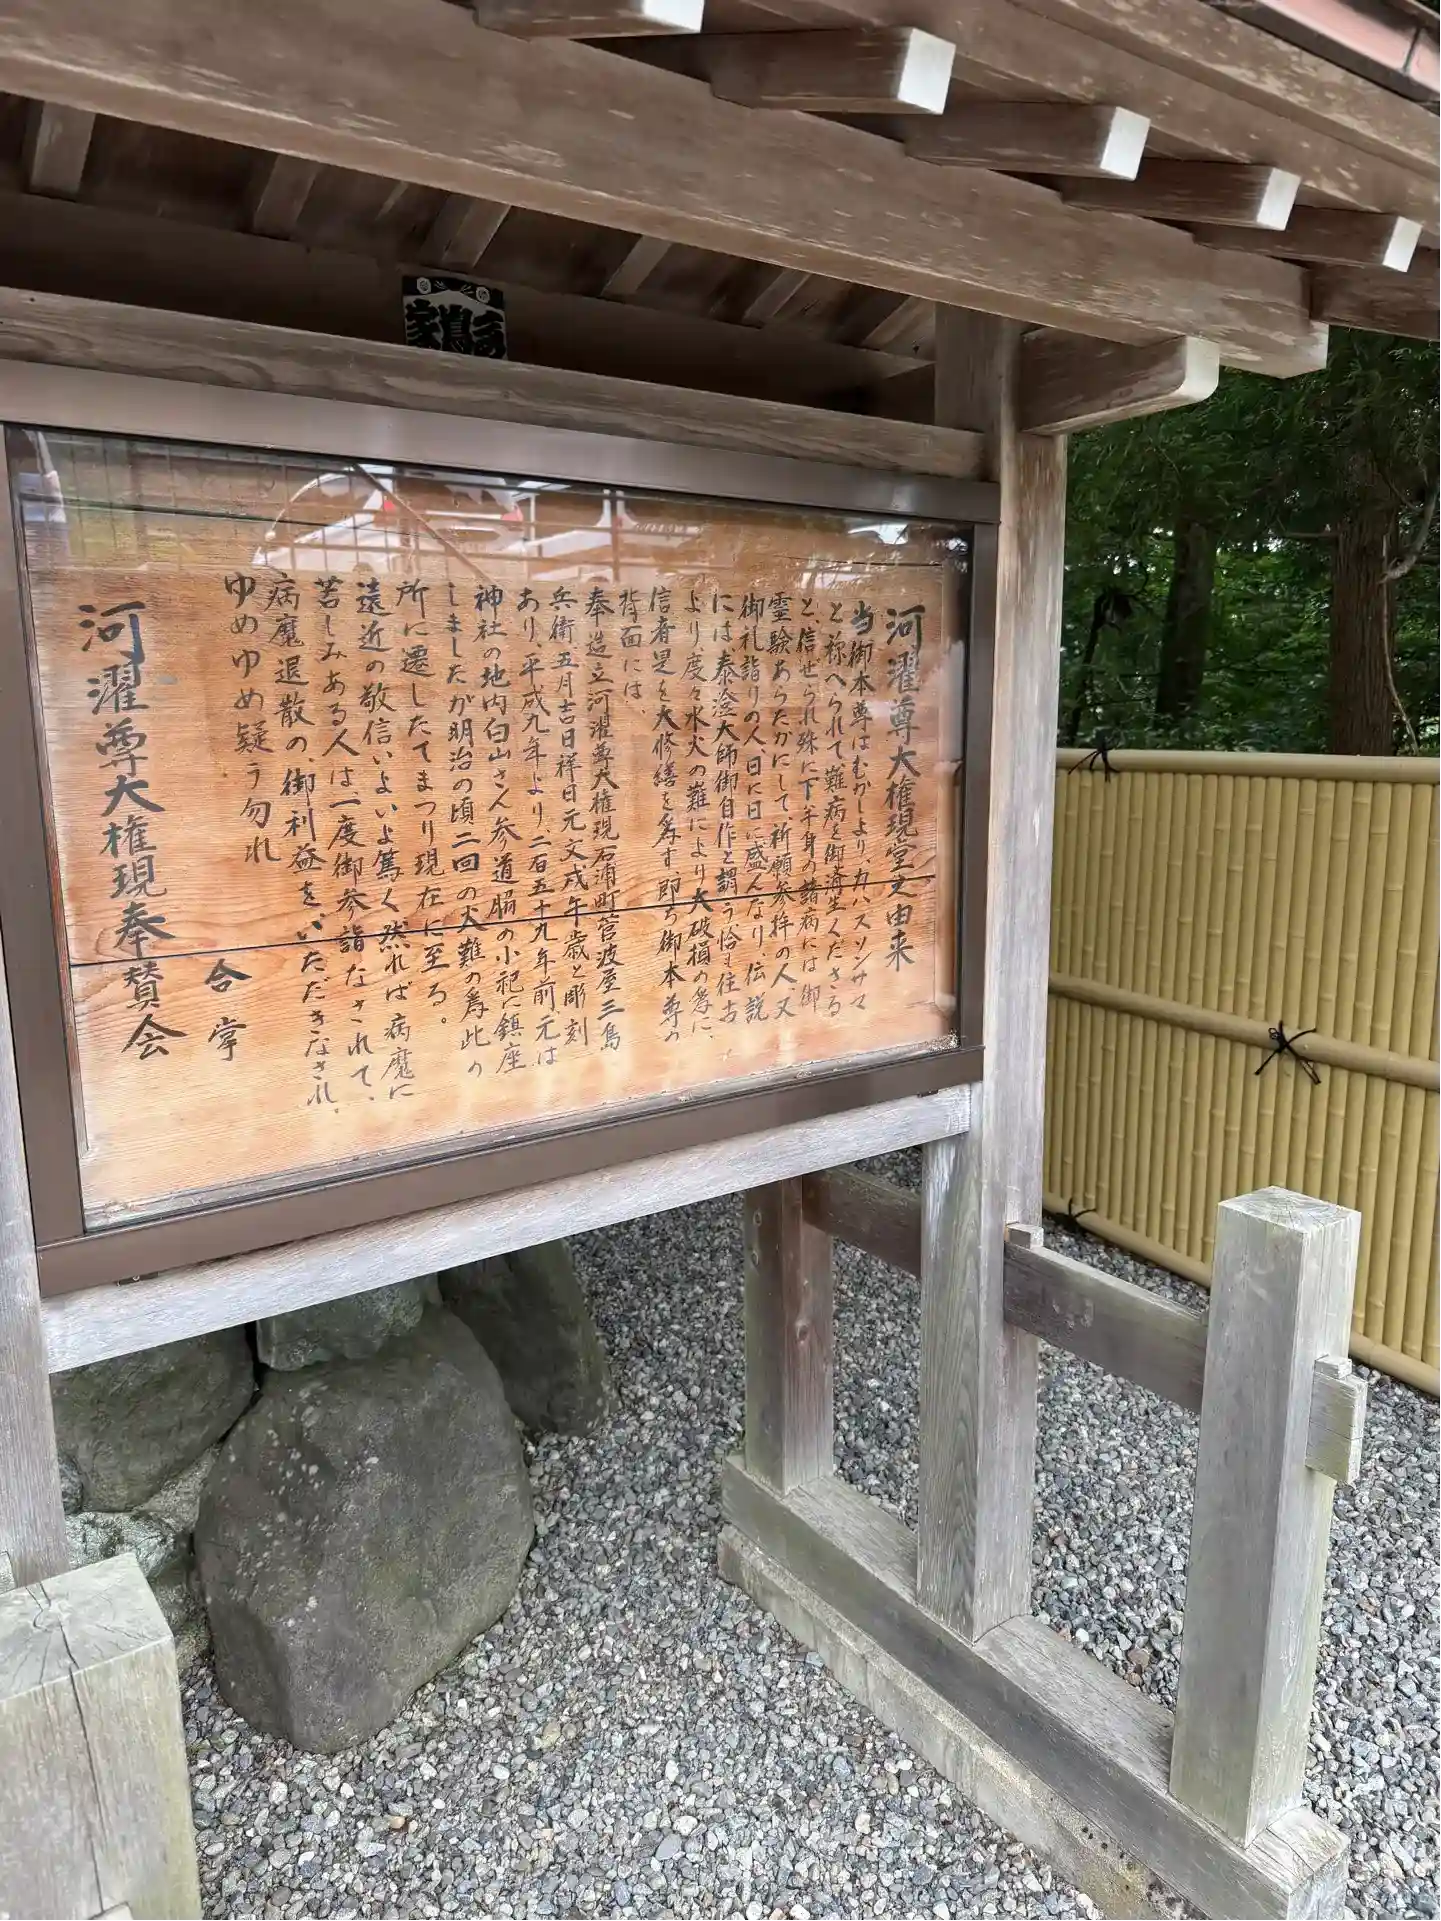 河濯尊大権現堂之由来
当御本尊はむかしより、カハスソンサマ
と称へられて、難病を御済生くださる
と、信ぜられ殊に下半身の諸病には御
霊験あらたかにして、祈願参拝の人、又
御礼詣りの人、日に日に盛んなり、伝説
には泰澄大師御自作と謂う恰も往古
より、度々水火の難により大破損の為に、
信者是を大修繕を為す、即ち御本尊の
背面には、
奉造立河濯尊大権現石浦町菅波屋三烏
兵衛五月吉日祥日元文戌午歳と彫刻
あり、平成九年より、二百五十九年前、元は
神社の地内白山さん参道脇の小祀に鎮座
しましたが明治の頃二回の火難の為此の
所に遷したてまつり現在に至る。
遠近の敬信いよいよ篤く然れば病魔に
苦しみある人は、一度御参詣なされて、
病魔退散の、御利益をいただきなされ、
ゆめゆめ疑う勿れ
合掌
河濯尊大権現奉賛会